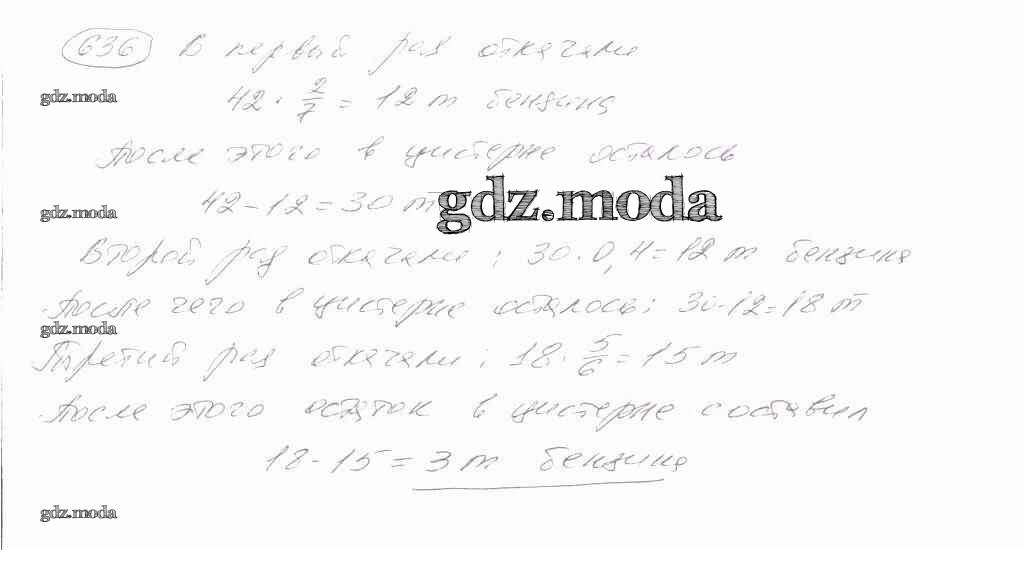 636 В первый раз откачали
gdz.moda
42 · 2/7 = 12 т бензина
После этого в цистерне осталось
42 - 12 = 30 т
gdz.moda
gdz.moda
Второй раз откачали: 30 · 0,4 = 12 т бензина
После чего в цистерне осталось: 30 - 12 = 18 т
gdz.moda
Третий раз откачали: 18 · 5/6 = 15 т
После этого остаток в цистерне составил
18 - 15 = 3 т бензина
gdz.moda